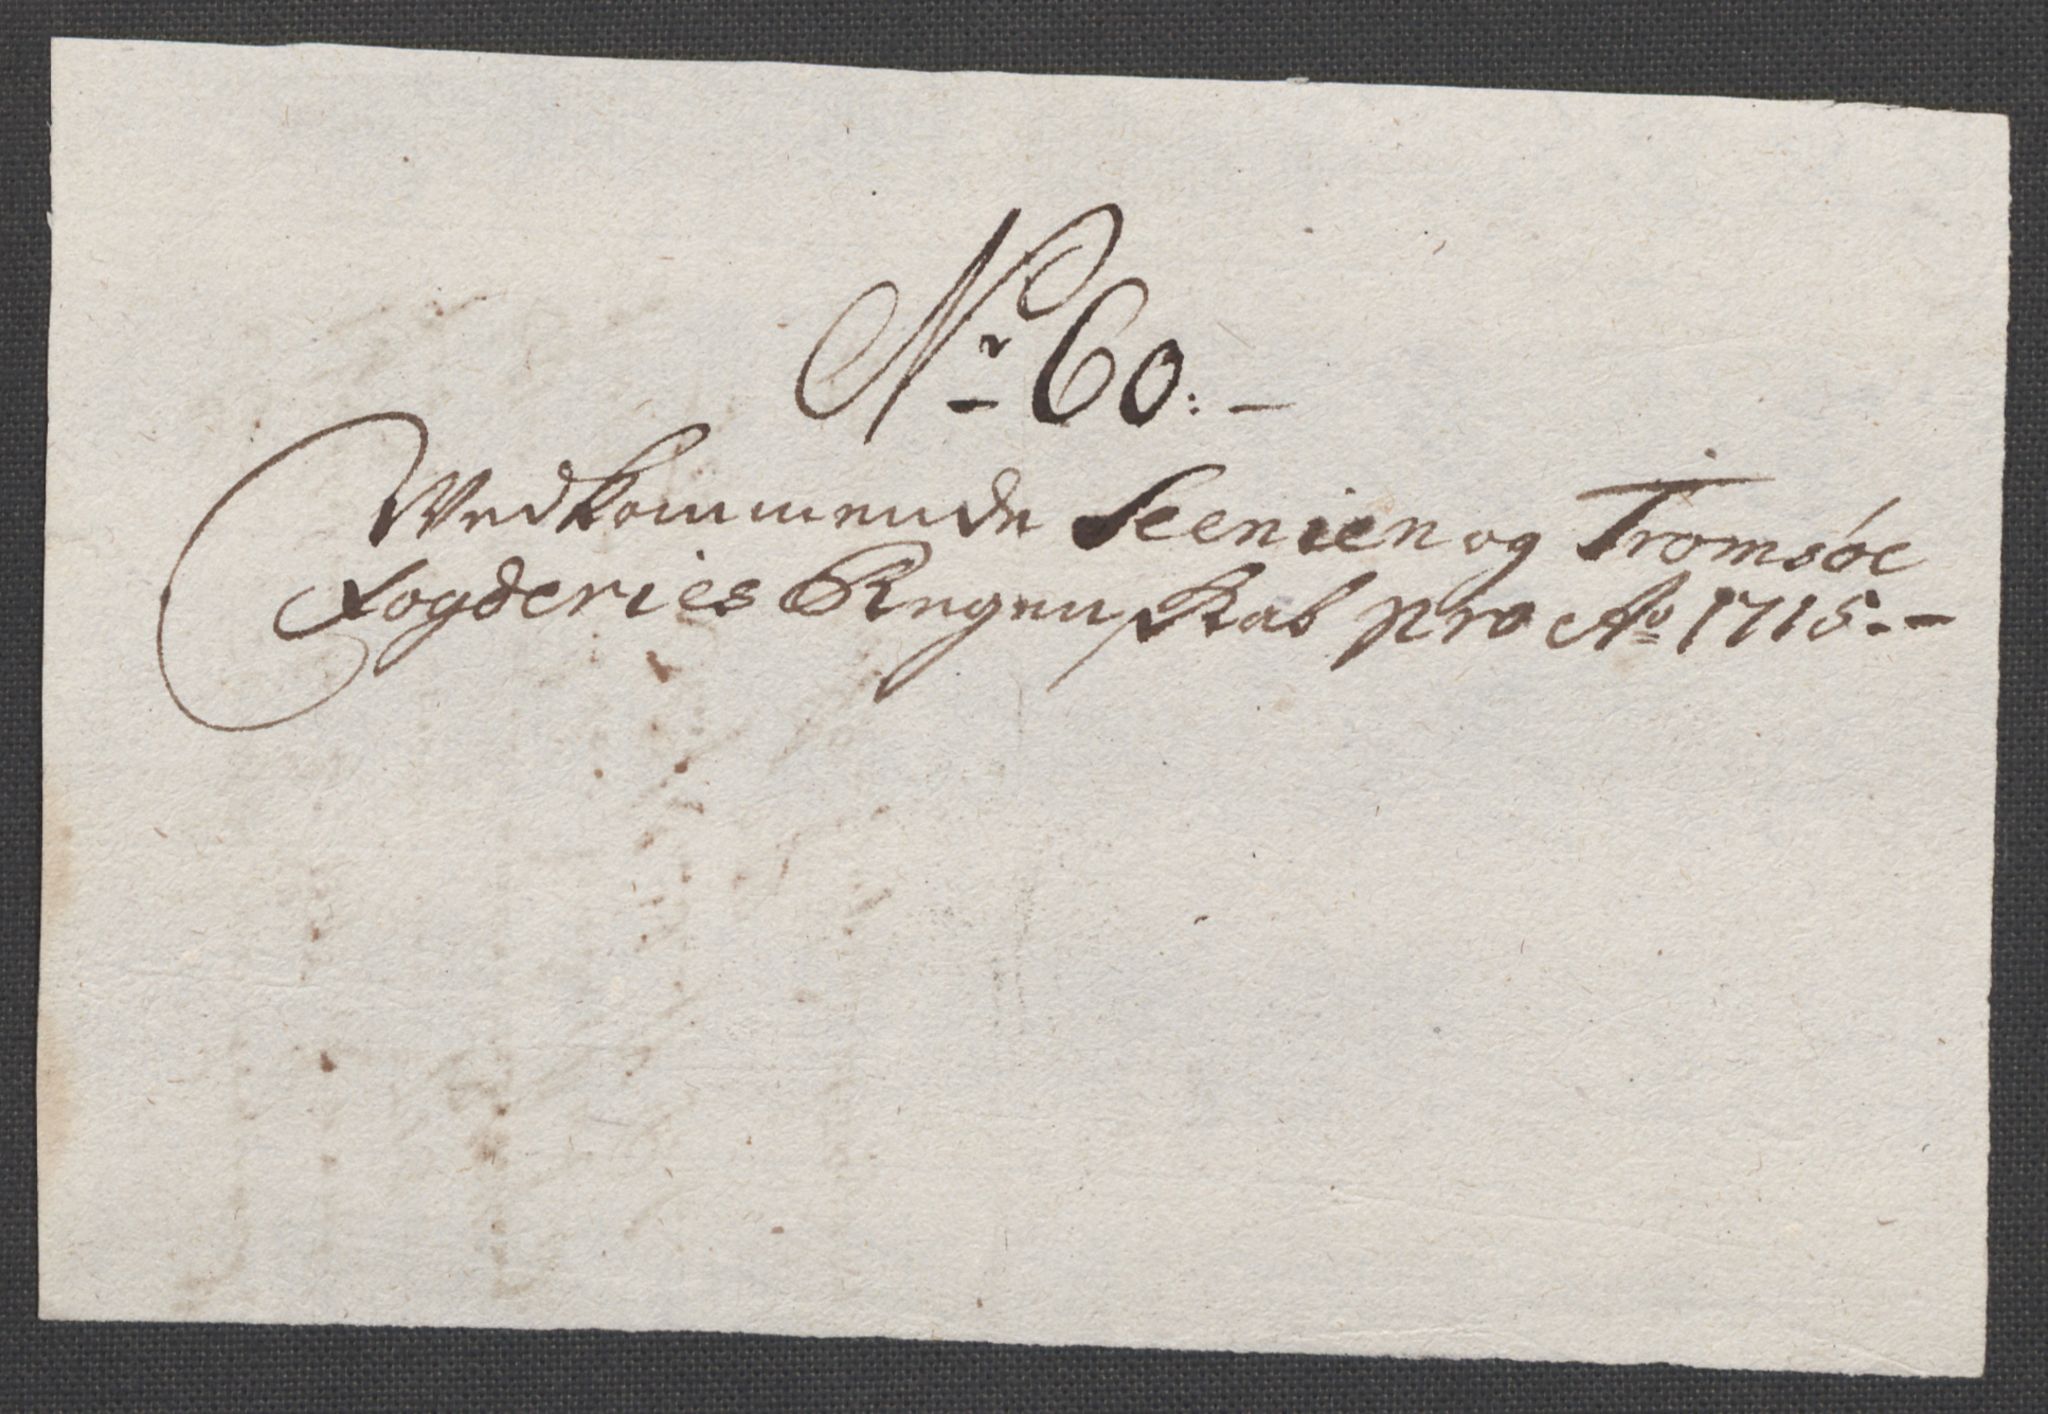 Nr 60:-
Vedkommende Seenien og Tromsøe
Fogderies Regenskab pro Ao 1715.-